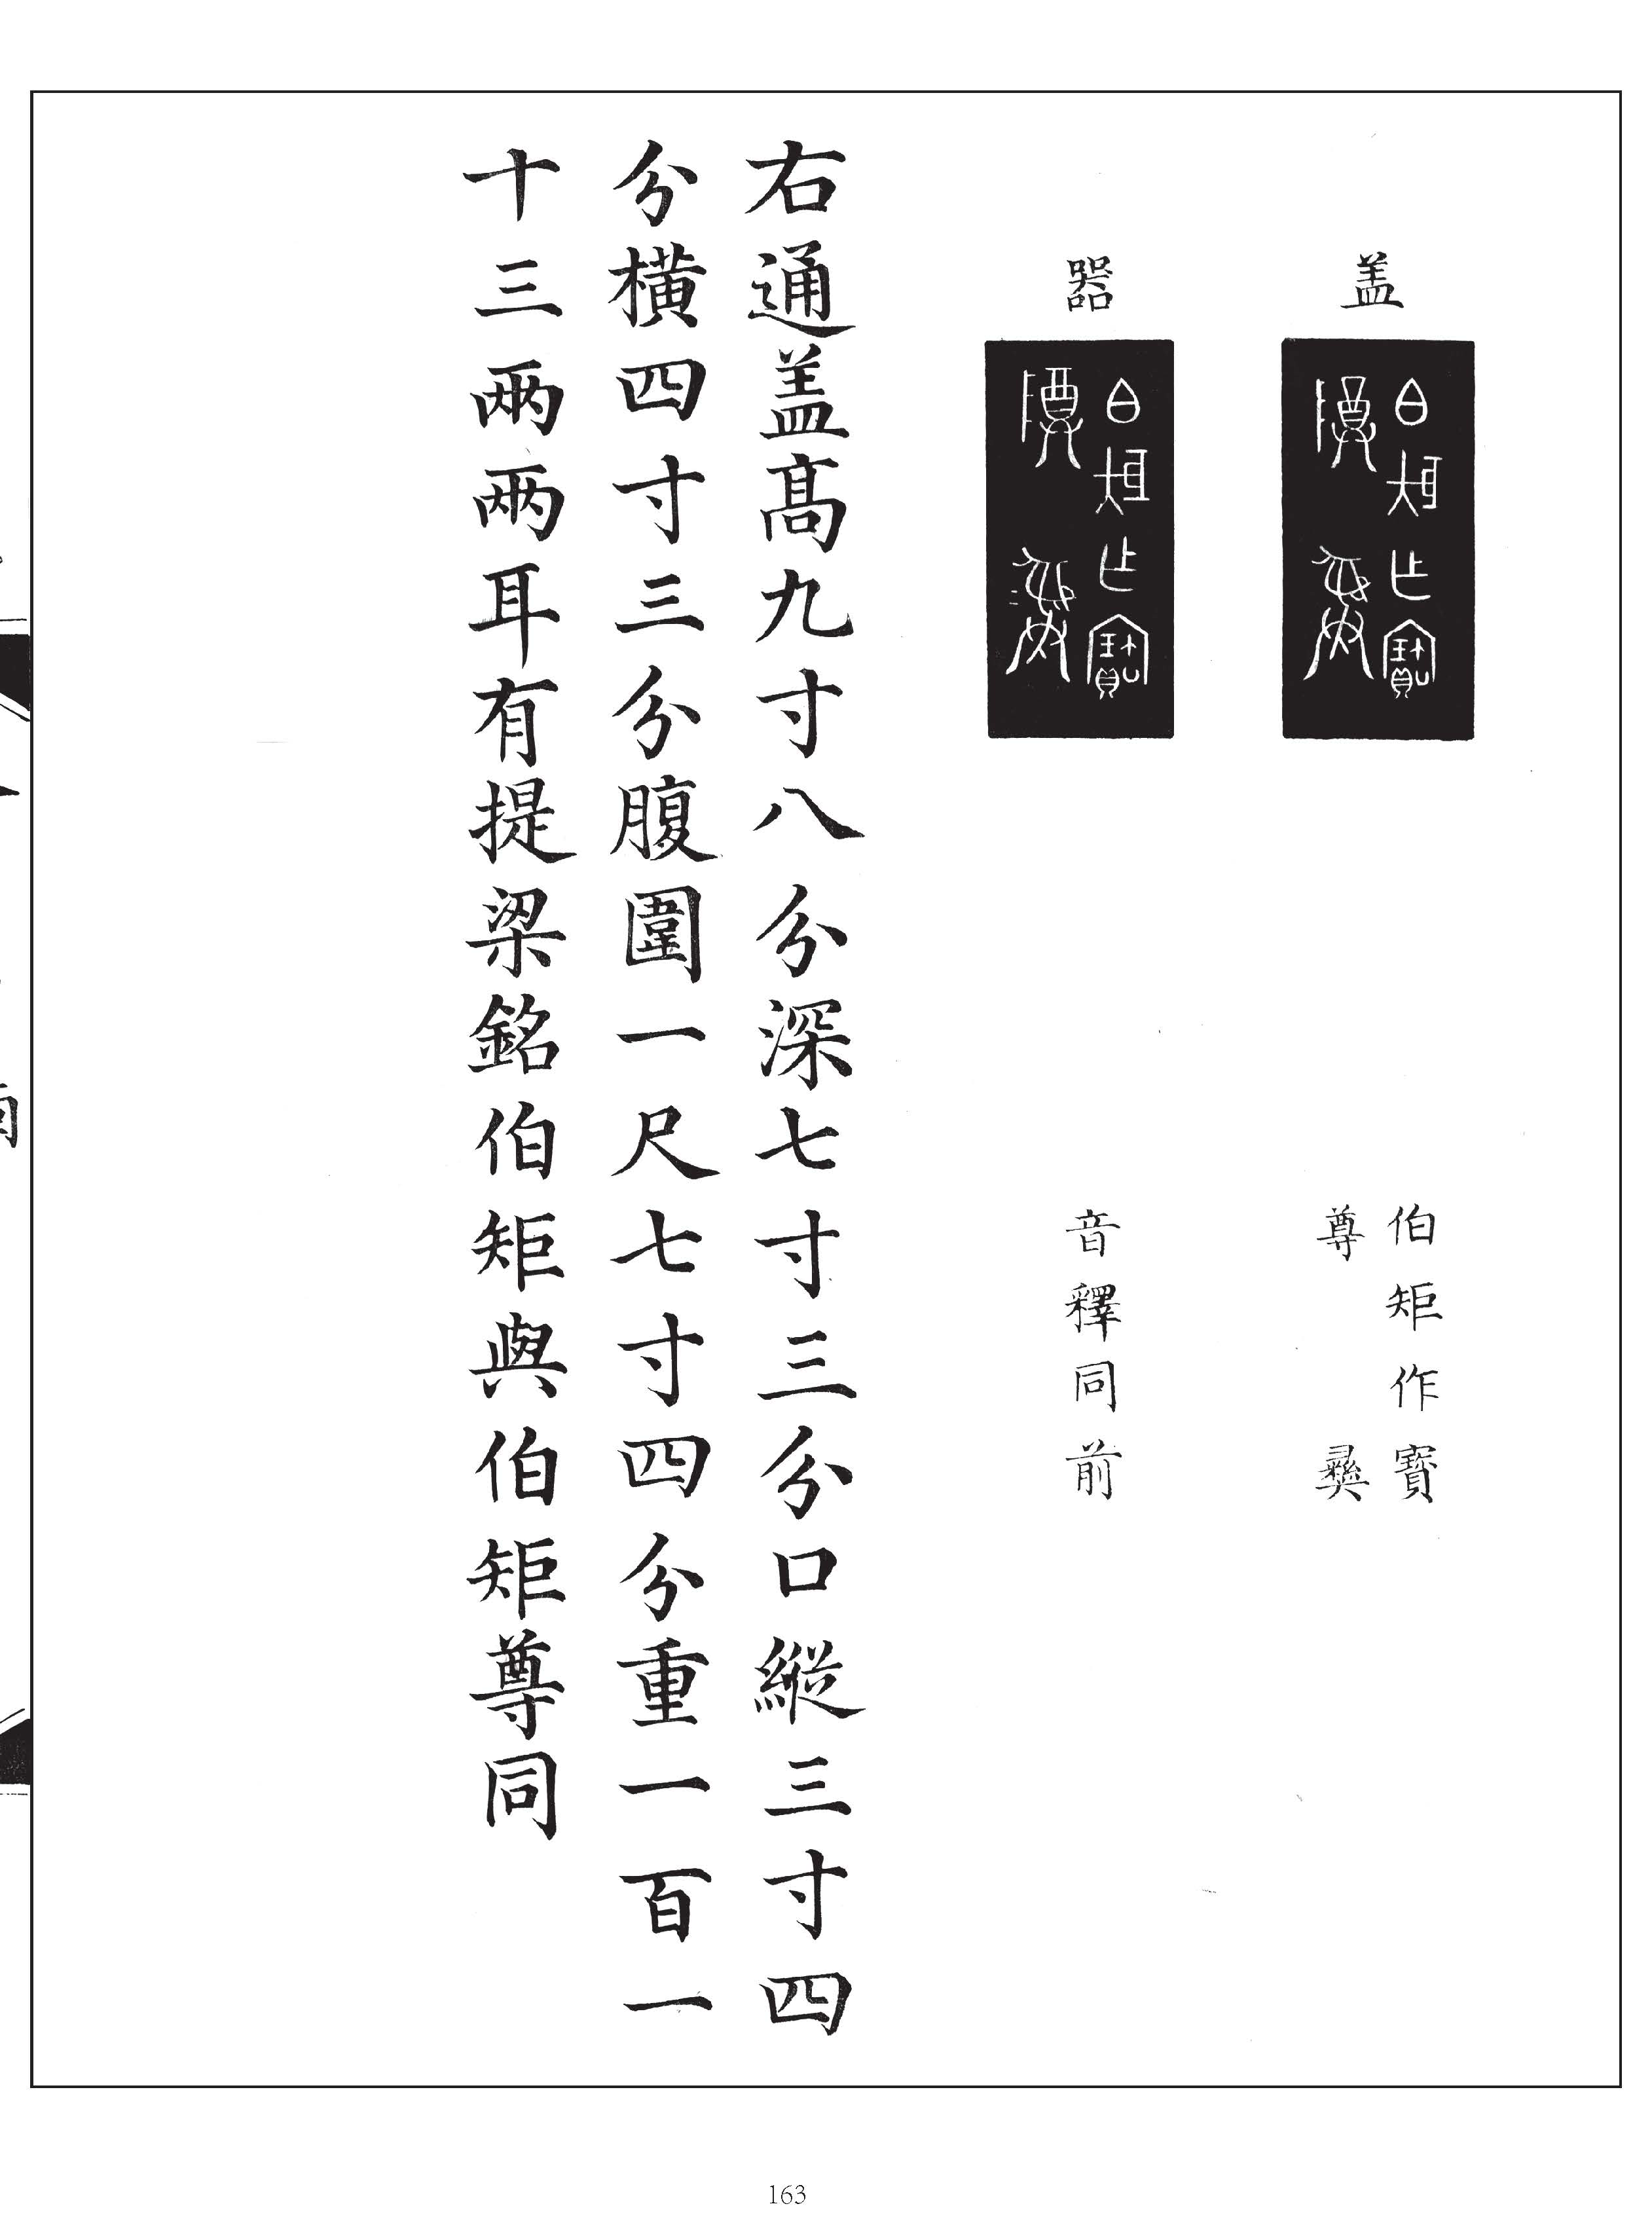 盖
伯矩作寶
尊彝
器
音釋同前
右通盖高九寸八分深七寸三分口縱三寸四
分橫四寸三分腹圍一尺七寸四分重一百一
十三兩兩耳有提梁銘伯矩與伯矩尊同
163